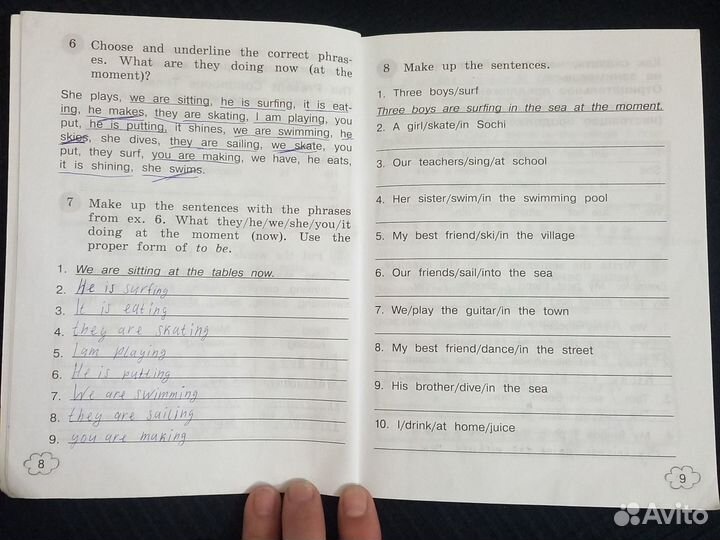 6 Choose and underline the correct phras-
es. What are they doing now (at the
moment)?
She plays, we are sitting, he is surfing, it is eat-
ing, he makes, they are skating, I am playing, you
put, he is putting, it shines, we are swimming, he
skies, she dives, they are sailing, we skate, you
put, they surf, you are making, we have, he eats,
it is shining, she swims.
7 Make up the sentences with the phrases
from ex. 6. What they/he/we/she/you/it
doing at the moment (now). Use the
proper form of to be.
1. We are sitting at the tables now.
2. He is surfing
3. It is eating
4. they are skating
5. I am playing
6. He is putting
7. We are swimming
8. they are sailing
9. you are making
8
8 Make up the sentences.
1. Three boys/surf
Three boys are surfing in the sea at the moment.
2. A girl/skate/in Sochi
3. Our teachers/sing/at school
4. Her sister/swim/in the swimming pool
5. My best friend/ski/in the village
6. Our friends/sail/into the sea
7. We/play the guitar/in the town
8. My best friend/dance/in the street
9. His brother/dive/in the sea
10. I/drink/at home/juice
9
Avito